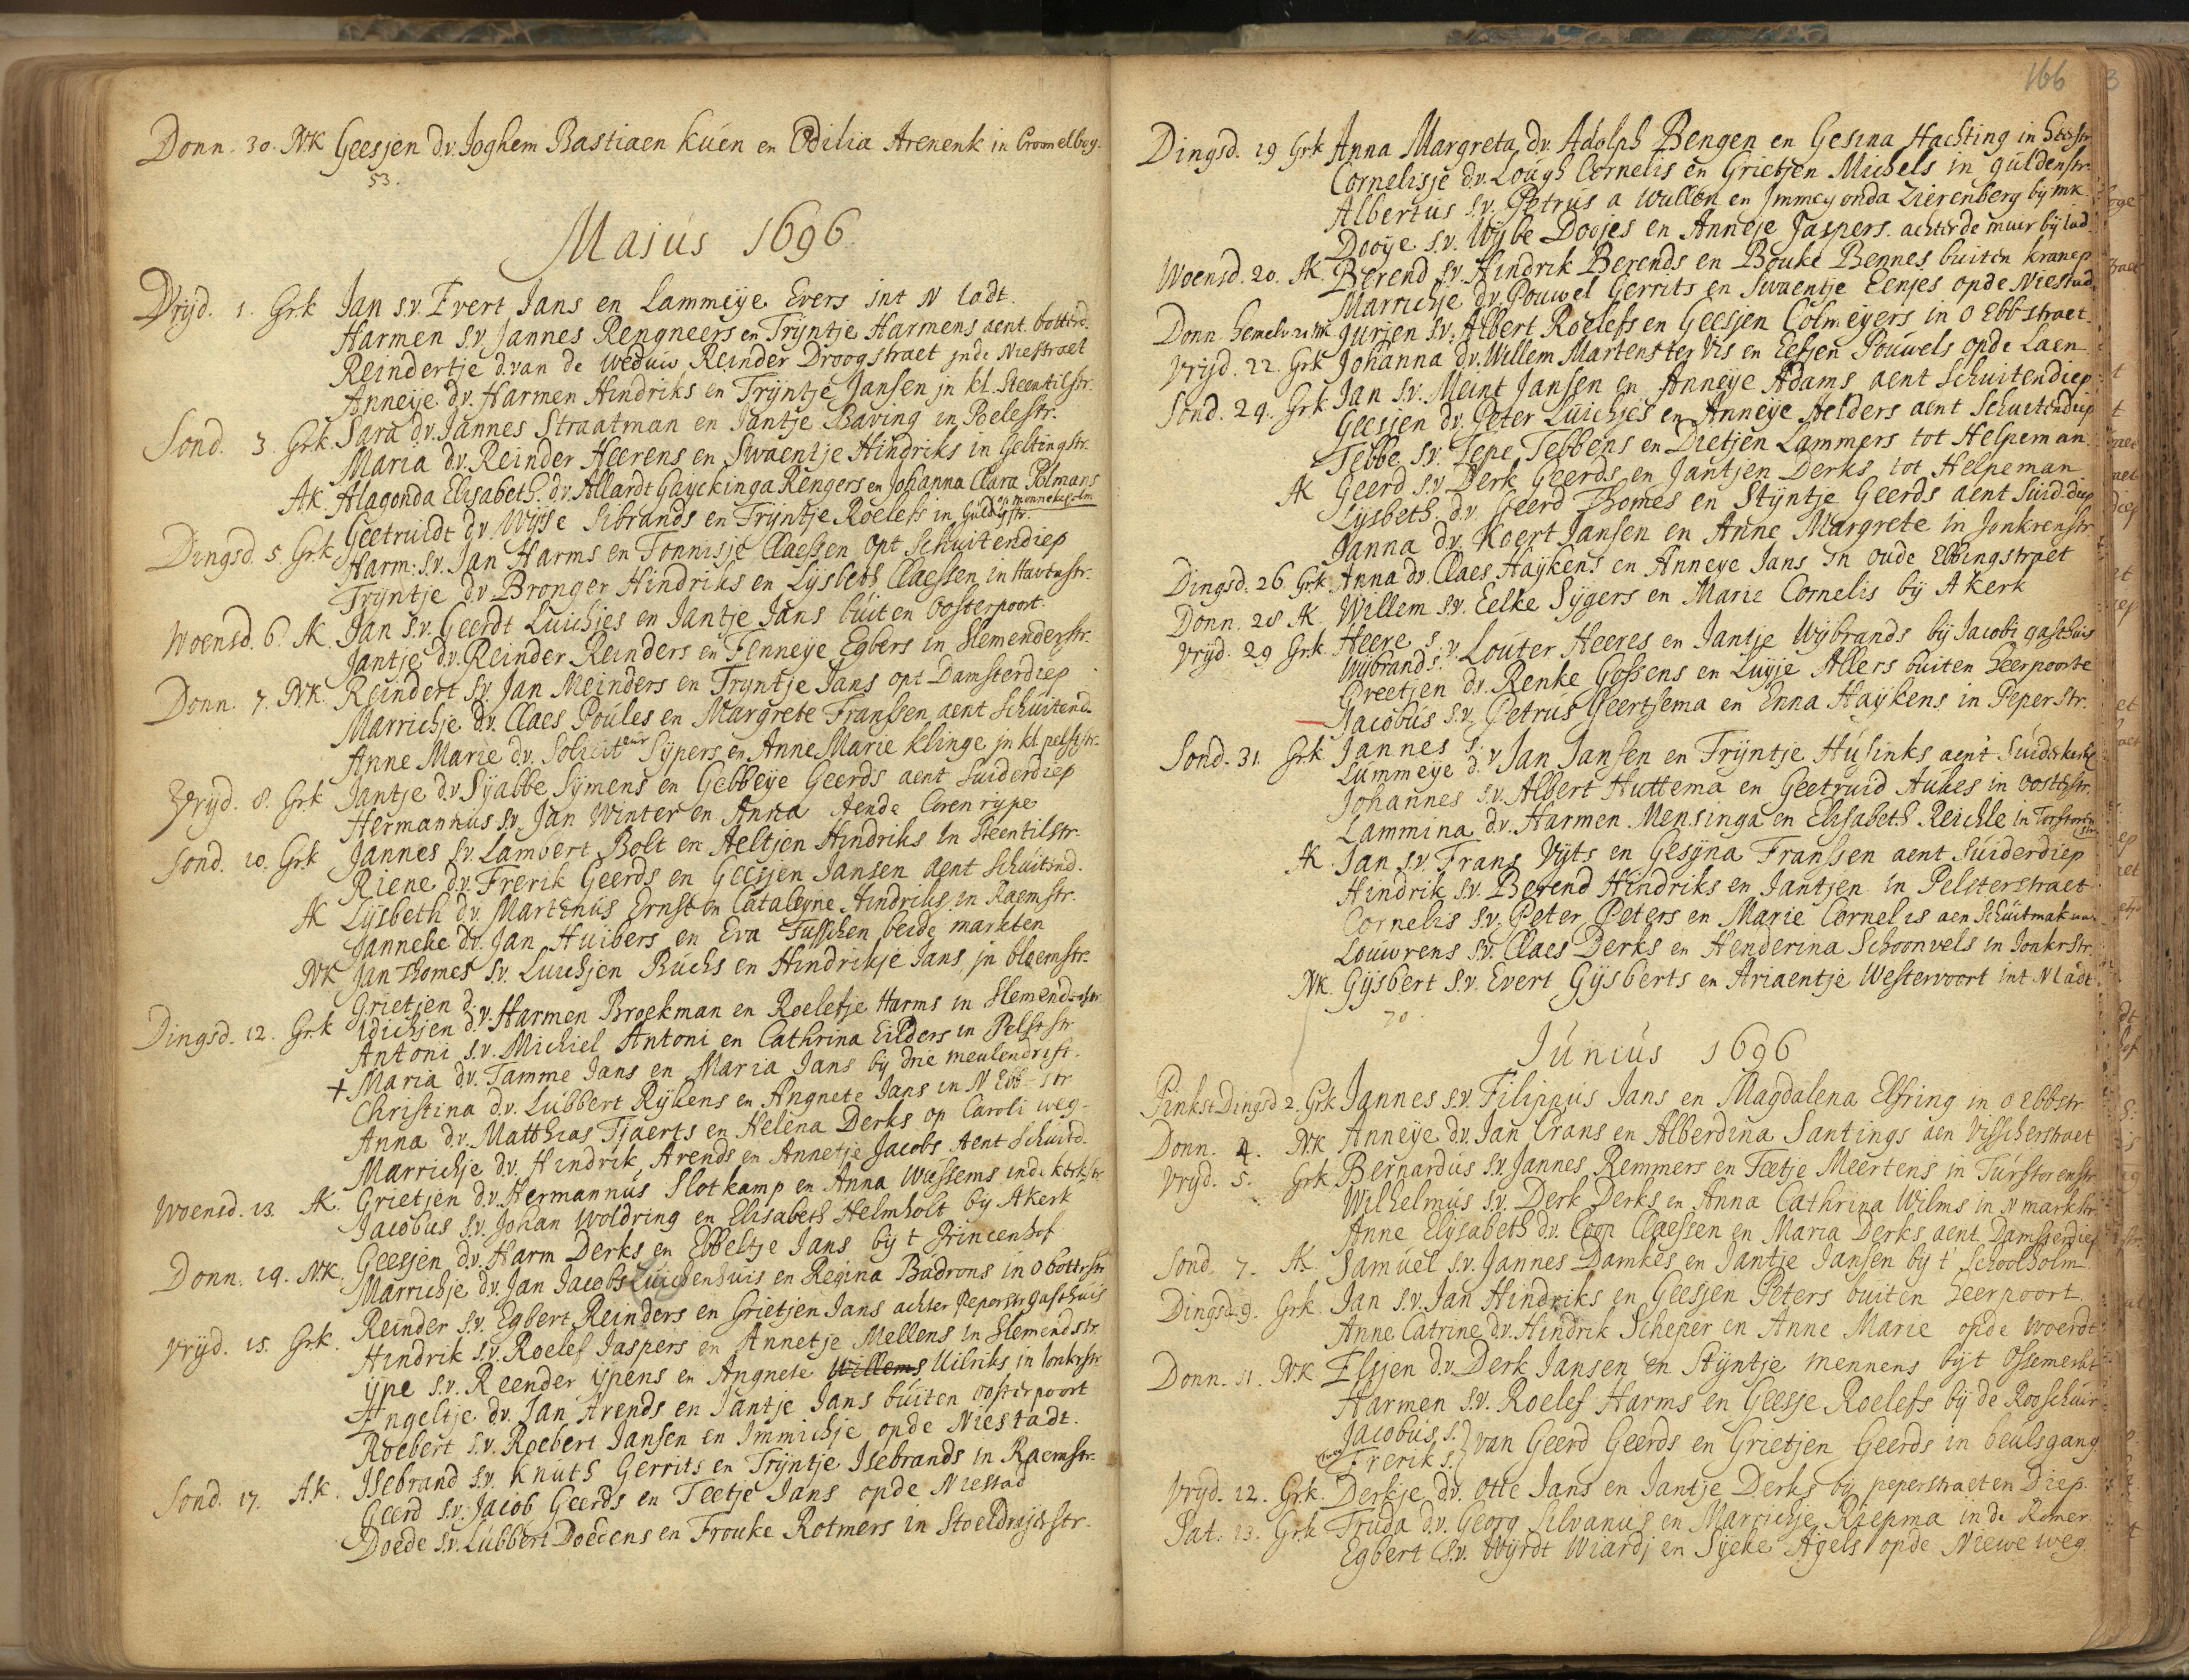 Donn. 30. NK Geesjen d.v. Joghem Bastiaen Kuen en Odilia Arenenk in Cromelbog.
53.
Majus 1696
Vrijd. 1. Grk Jan s.v. Evert Jans en Lammeije Evers int N ladt.
Harmen s.v. Jannes Rengneers en Trijntje Harmens aent botterd.
Reindertje d.van de weduw Reinder Droogstraet jnde Niestraet
Anneije d.v. Harmen Hindriks en Trijntje Jansen jn kl. Steentilstr.
Sond. 3 Grk. Sara d.v. Jannes Straatman en Jantje Baving in Poelestr.
Maria d.v. Reinder Heerens en Swaentje Hindriks in Geltingstr.
AK Alagonda Elisabeth. d.v. Allardt Gayckinga Rengers en Johanna Clara Polmans
op munnekeholm
Geetruidt d.v. Wijtse Sibrands en Trijntje Roelefs in Guld gstr.
Dingsd. 5. Grk Harm. s.v. Jan Harms en Tonnisje Claessen opt Schuitendiep
Trijntje d.v. Bronger Hindriks en Lijsbeth Claessen in Havenstr.
Woensd. 6 AK Jan s.v. Geerdt Luichjes en Jantje Jans buiten Oosterpoort.
Jantje d.v. Reinder Reinders en Fenneije Egbers in Slemenderstr.
Donn. 7. NK. Reindert s.v. Jan Meinders en Trijntje Jans opt Damsterdiep
Marrichje d.v. Claes Poules en Margrete Franssen aent Schuitend.
Anne Marie d.v. Soliciteur Sijpers en Anne Marie Klinge jn kl pelsstr.
Vrijd. 8. Grk Jantje d.v. Sijabbe Sijmens en Gebbeije Geerds aent Suiderdiep
Hermannus s.v. Jan Winter en Anna Aende Cerenrijpe
Sond. 10. Grk Jannes s.v. Lambert Bolt en Aeltjen Hindriks In Steentilstr.
Riene d.v. Frerik Geerds en Geesjen Jansen aent Schuitnd.
AK Lijsbeth d.v. Martinus Ernst en Cataleijne Hindriks in Raemstr.
Janneke d.v. Jan Huibers en Eva Tusschen beide markten
NK Jan Thomes s.v. Luichjen Ruchs en Hindrikje Jans jn bloemstr.
Grietjen d.
Dingsd. 12. Grk Idichjen d.v. Harmen Broekman en Roelefje Harms in Slemenderstr
Antoni s.v. Michiel Antoni en Cathrina Eilders in Pelsstr
+ Maria d.v. Tamme Jans en Maria Jans bij drie meulendrift.
Christina d.v. Lubbert Rijkens en Angnete Jans in N Ebb-str
Anna d.v. Matthias Tjaerts en Helena Derks op Caroli weg.
Marrichje d.v. Hindrik Arends en Annetje Jacobs Aent Schuitd.
Woensd. 13. AK. Grietjen d.v. Hermannus Slotkamp en Anna Wessems inde kerkstr
Jacobus s.v. Johan Woldring en Elisabeth Helmholt bij Akerk
Donn. 14. NK. Geesjen d.v. Harm Derks en Ebbeltje Jans bij t Princenhof
Marrichje d.v. Jan Jacobs Luichenhuis en Regina Budrons in O bottrstr
Reinder s.v. Egbert Reinders en Grietjen Jans achter Peperstrgasthuis
Vrijd. 15. Grk. Hindrik s.v. Roelef Jaspers en Annetje Mellens in Slemendstr
Ijpe s.v. Reender ijpens en Angnete Willems Uilriks in Jonkrstr
Engeltje d.v. Jan Arends en Jantje Jans buiten oosterpoort
Roebert s.v. Roebert Jansen en Immichje opde Niestadt.
Sond. 17. AK. Isebrand s.v. Knuth Gerrits en Trijntje Isebrands in Raemstr.
Geerd s.v. Jacob Geerds en Teetje Jans opde Niestad
Doede s.v. Lubbert Doedens en Frouke Rotmers in Stoeldraijerstr.
166
Dingsd. 19 Grk Anna Margreta d.v. Adolph Bengen en Gesina Hachting in
Cornelisje d.v. Lough Cornelis en Grietjen Michels in guldenstr.
Albertus s.v. Petrus a Wullen en Jmmegonda Zierenberg bij mk.
Dooije s.v. Wijbe Doojes en Anneje Jaspers achter de muir bij
Woensd. 20. AK. Berend s.v. Hindrik Berends en Bouke Bennes buiten kranep
Marrichje d.v. Pouwel Gerrits en Swaentje Eenjes opde Niestad.
Donn. hemelv. 21 NK Jurjen s.v. Albert Roelefs en Geesjen Colmeijers in O Ebbstraet
Vrijd. 22. Grk Johanna d.v. Willem Martens ter Vis en Eefjen Pouwels opde Laen
Sond. 24. Grk Jan s.v. Meint Jansen en Anneije Adams aent Schuitendiep
Geesjen d.v. Peter Luichjes en Anneije Aelders aent Schuitendiep
Tebbe s.v. Tepe Tebbens en Dietjen Lammers tot Helpeman
AK Geerd s.v. Derk Geerds en Jantjen Derks tot Helpeman
Lijsbeth d.v. Geerd Thomes en Stijntje Geerds aent Suid.diep
Janna d.v. Koert Jansen en Anne Margrete in Jonkrenstr
Dingsd. 26. Grk Anna d.v. Claes Haijkens en Anneye Jans in oude Ebbingstraet
Donn. 28 AK Willem s.v. Eelke Sijgers en Marie Cornelis bij A kerk
Vrijd. 29 Grk. Heere s.
Wijbrand s. v. Louter Heeres en Jantje Wijbrands bij Jacobi gasthuis
Greetjen d.v. Renke Gossens en Luijje Allers buiten heerpoorte
Jacobus s.v. Petrus Geertsema en Enna Haijkens in Peperstr.
Sond. 31. Grk Jannes s.
Lummeije d. v Jan Jansen en Trijntje Husinks aent Suiderkerkh
Johannes s.v. Albert Huttema en Geetruid Aukes in oosterstr.
Lammina d.v. Harmen Mensinga en Elisabeth Reichle in Torstoren
str
AK. Jan s.v. Frans Vijts en Gesijna Franssen aent Suiderdiep
Hindrik s.v. Berend Hindriks en Jantjen in Pelsterstraet
Cornelis s.v. Peter Peters en Marie Cornelis aen Schuitmak
Louwrens s.v. Claes Derks en Henderina Schoonvels in Jonkrstr.
NK. Gijsbert s.v. Evert Gijsberts en Ariaentje Westervoort int N ladt.
70
Junius 1696
Pinkst Dingsd 2. Grk Jannes s.v. Filippus Jans en Magdalena Elfring in o ebbstr
Donn. 4. NK Anneije d.v. Jan Crans en Alberdina Santings aen Visscherstraet
Vrijd. 5. Grk Bernardus s.v. Jannes Remmers en Teetje Meertens in Turfstorenstr
Wilhelmus s.v. Derk Derks en Anna Cathrina Wilms in N markstr.
Anne Elijsabeth d.v. Coop Claessen en Maria Derks aent Damsterdiep
Sond. 7. AK Samuel s.v. Jannes Damkes en Jantje Jansen bij t' Schoolholm
Dingsd. 9. Grk. Jan s.v. Jan Hindriks en Geesjen Peters buiten heerpoort.
Anne Catrine d.v. Hindrik Scheper en Anne Marie opde woerdt
Donn. 11. NK Elsjen d.v. Derk Jansen en Stijntje mennens bijt Ossemerkt
Harmen s.v. Roelef Harms en Geesje Roelefs bij de Rooschuir
Jacobus s.
Frerik s. } van Geerd Geerds en Grietjen Geerds in beulsgang
Vrijd. 12. Grk. Derkje d.v. Otte Jans en Jantje Derks bij peperstraeten Diep.
Sat. 13. Grk Truda d.v. Georg Silvanus en Marrichje Riepma in de Romer
Egbert s.v. Wijrdt Wiardj en Sijeke Agels opde Niewe weg.